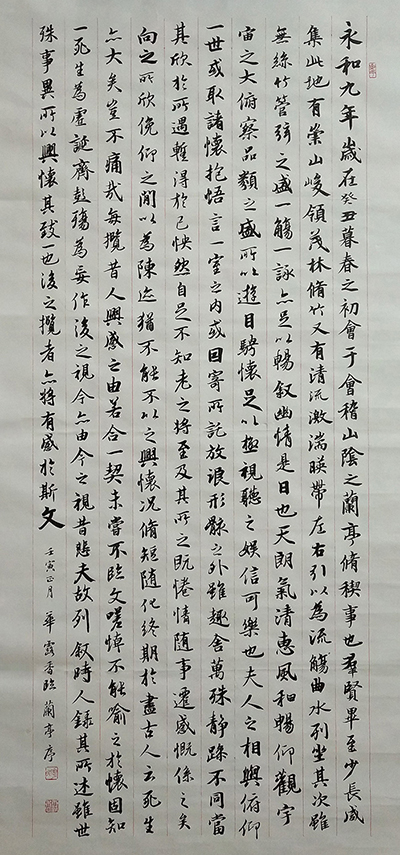 永和九年歲在癸丑暮春之初會于會稽山陰之蘭亭脩稧事也羣賢畢至少長咸
集此地有崇山峻領茂林脩竹又有清流激湍暎帶左右引以為流觴曲水列坐其次雖
無絲竹管弦之盛一觴一詠亦足以暢叙幽情是日也天朗氣清惠風和暢仰觀宇
宙之大俯察品類之盛所以遊目騁懷足以極視聽之娛信可樂也夫人之相與俯仰
一世或取諸懷抱悟言一室之內或因寄所託放浪形骸之外雖趣舍萬殊靜躁不同當
其欣於所遇暫得於己怏然自足不知老之將至及其所之既惓情隨事遷感慨係之矣
向之所欣俛仰之間以為陳迹猶不能不以之興懷況脩短隨化終期於盡古人云死生
亦大矣豈不痛哉每攬昔人興感之由若合一契未嘗不臨文嗟悼不能喻之於懷固知
一死生為虛誕齊彭殤為妄作後之視今亦由今之視昔悲夫故列叙時人錄其所述雖世
殊事異所以興懷其致一也後之攬者亦將有感於斯文
壬寅正月 華 香臨蘭亭序